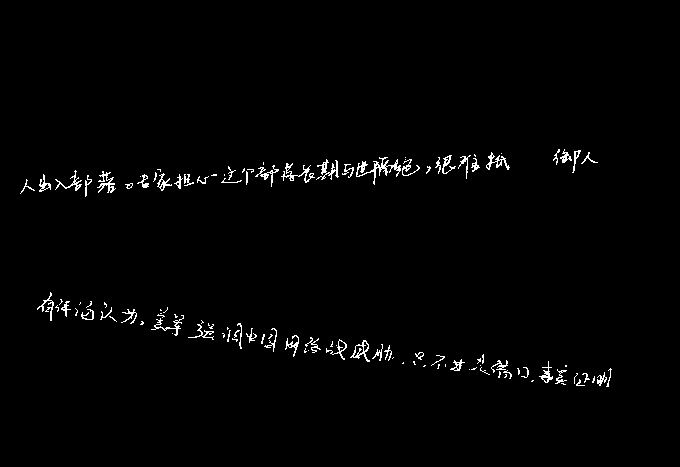 人出入部落。专家担心这个部落长期与世隔绝，很难抵 御人
有评论认为，美军强调中国网络战威胁，只不过是借口，事实证明